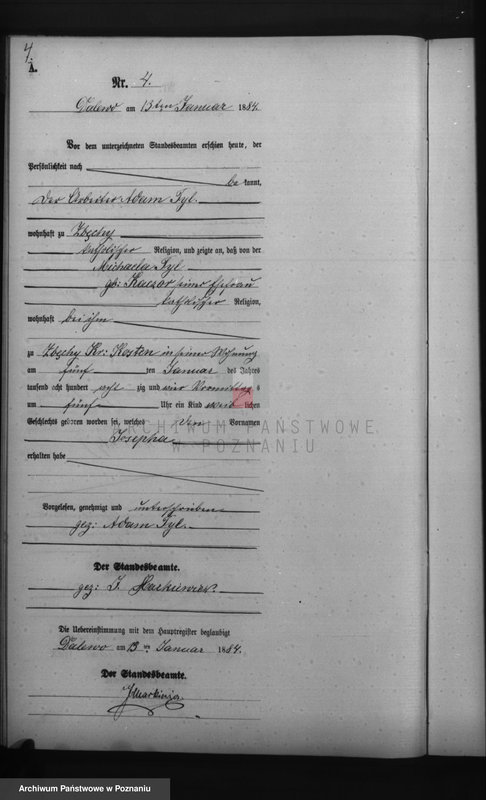 4.
A.
Nr. 4.
Dalewo am 13ten Januar 1884.
Vor dem unterzeichneten Standesbeamten erschien heute, der
Persönlichkeit nach
be kannt,
Der Arbeiter Adam Tyl.
wohnhaft zu Zbechy
katholischer Religion, und zeigte an, daß von der
Michaela Tyl
geb: Kaczor seiner Ehefrau
katholischer Religion,
wohnhaft bei ihm
zu Zbechy Kr: Kosten in seiner Wohnung
am fünf ten Januar des Jahres
tausend acht hundert acht zig und vier Vormittag s
um fünf Uhr ein Kind weib lichen
Geschlechts geboren worden sei, welches den Vornamen
Josepha
erhalten habe
Vorgelesen, genehmigt und unterschrieben
gez: Adam Tyl.
Der Standesbeamte.
gez: J. Markiewicz.
Die Uebereinstimmung mit dem Hauptregister beglaubigt
Dalewo am 13ten Januar 1884.
Der Standesbeamte.
ARCHIWUM PAŃSTWOWE
W POZNANIU
Archiwum Państwowe w Poznaniu